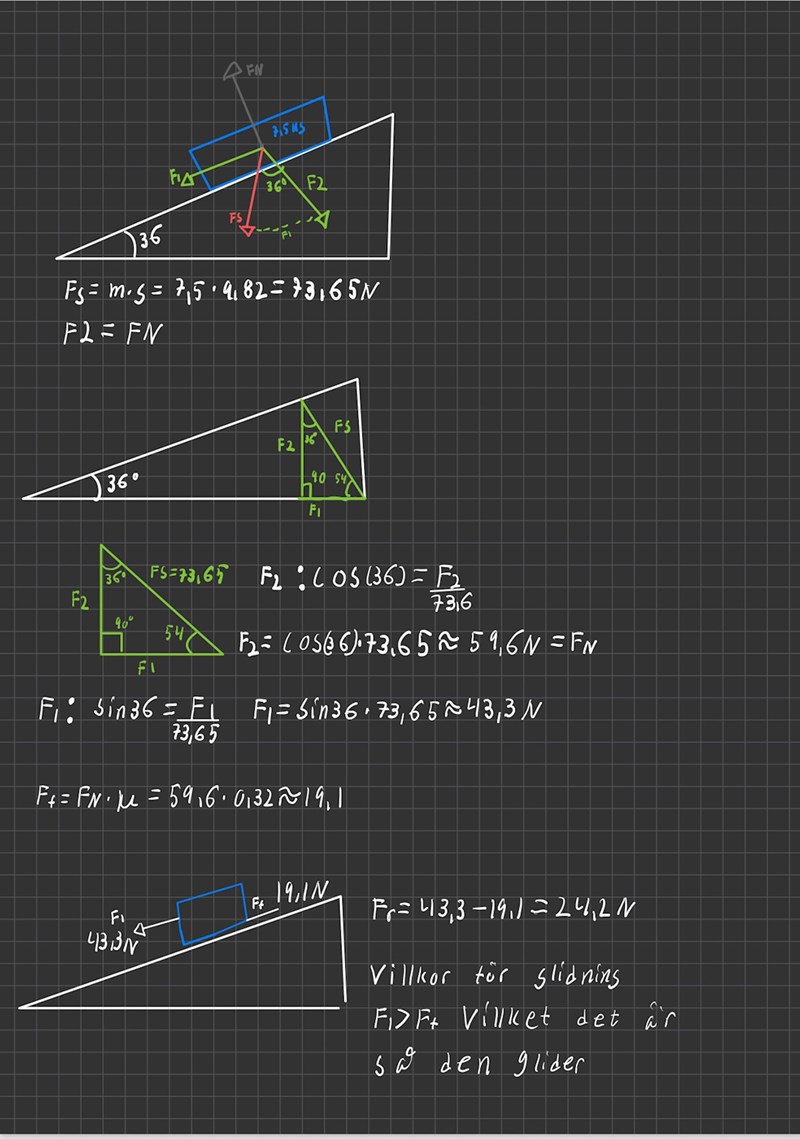 FN
7,5 kg
F1
36°
F2
Fg
F1
36
Fg = m·g = 7,5 · 9,82 = 73,65N
F2 = FN
36°
F2
36°
Fg
90
54
F1
36°
Fg = 73,65
F2
90°
54
F1
F2 : cos(36) = F2/73,6
F2 = cos(36) · 73,65 ≈ 59,6N = FN
F1: sin36 = F1/73,65 F1 = sin36 · 73,65 ≈ 43,3N
Ff = FN · μ = 59,6 · 0,32 ≈ 19,1
F1
43,3N
Ff
19,1N
Fr = 43,3 - 19,1 = 24,2N
Villkor för glidning
F1 > Ff Villket det är
så den glider